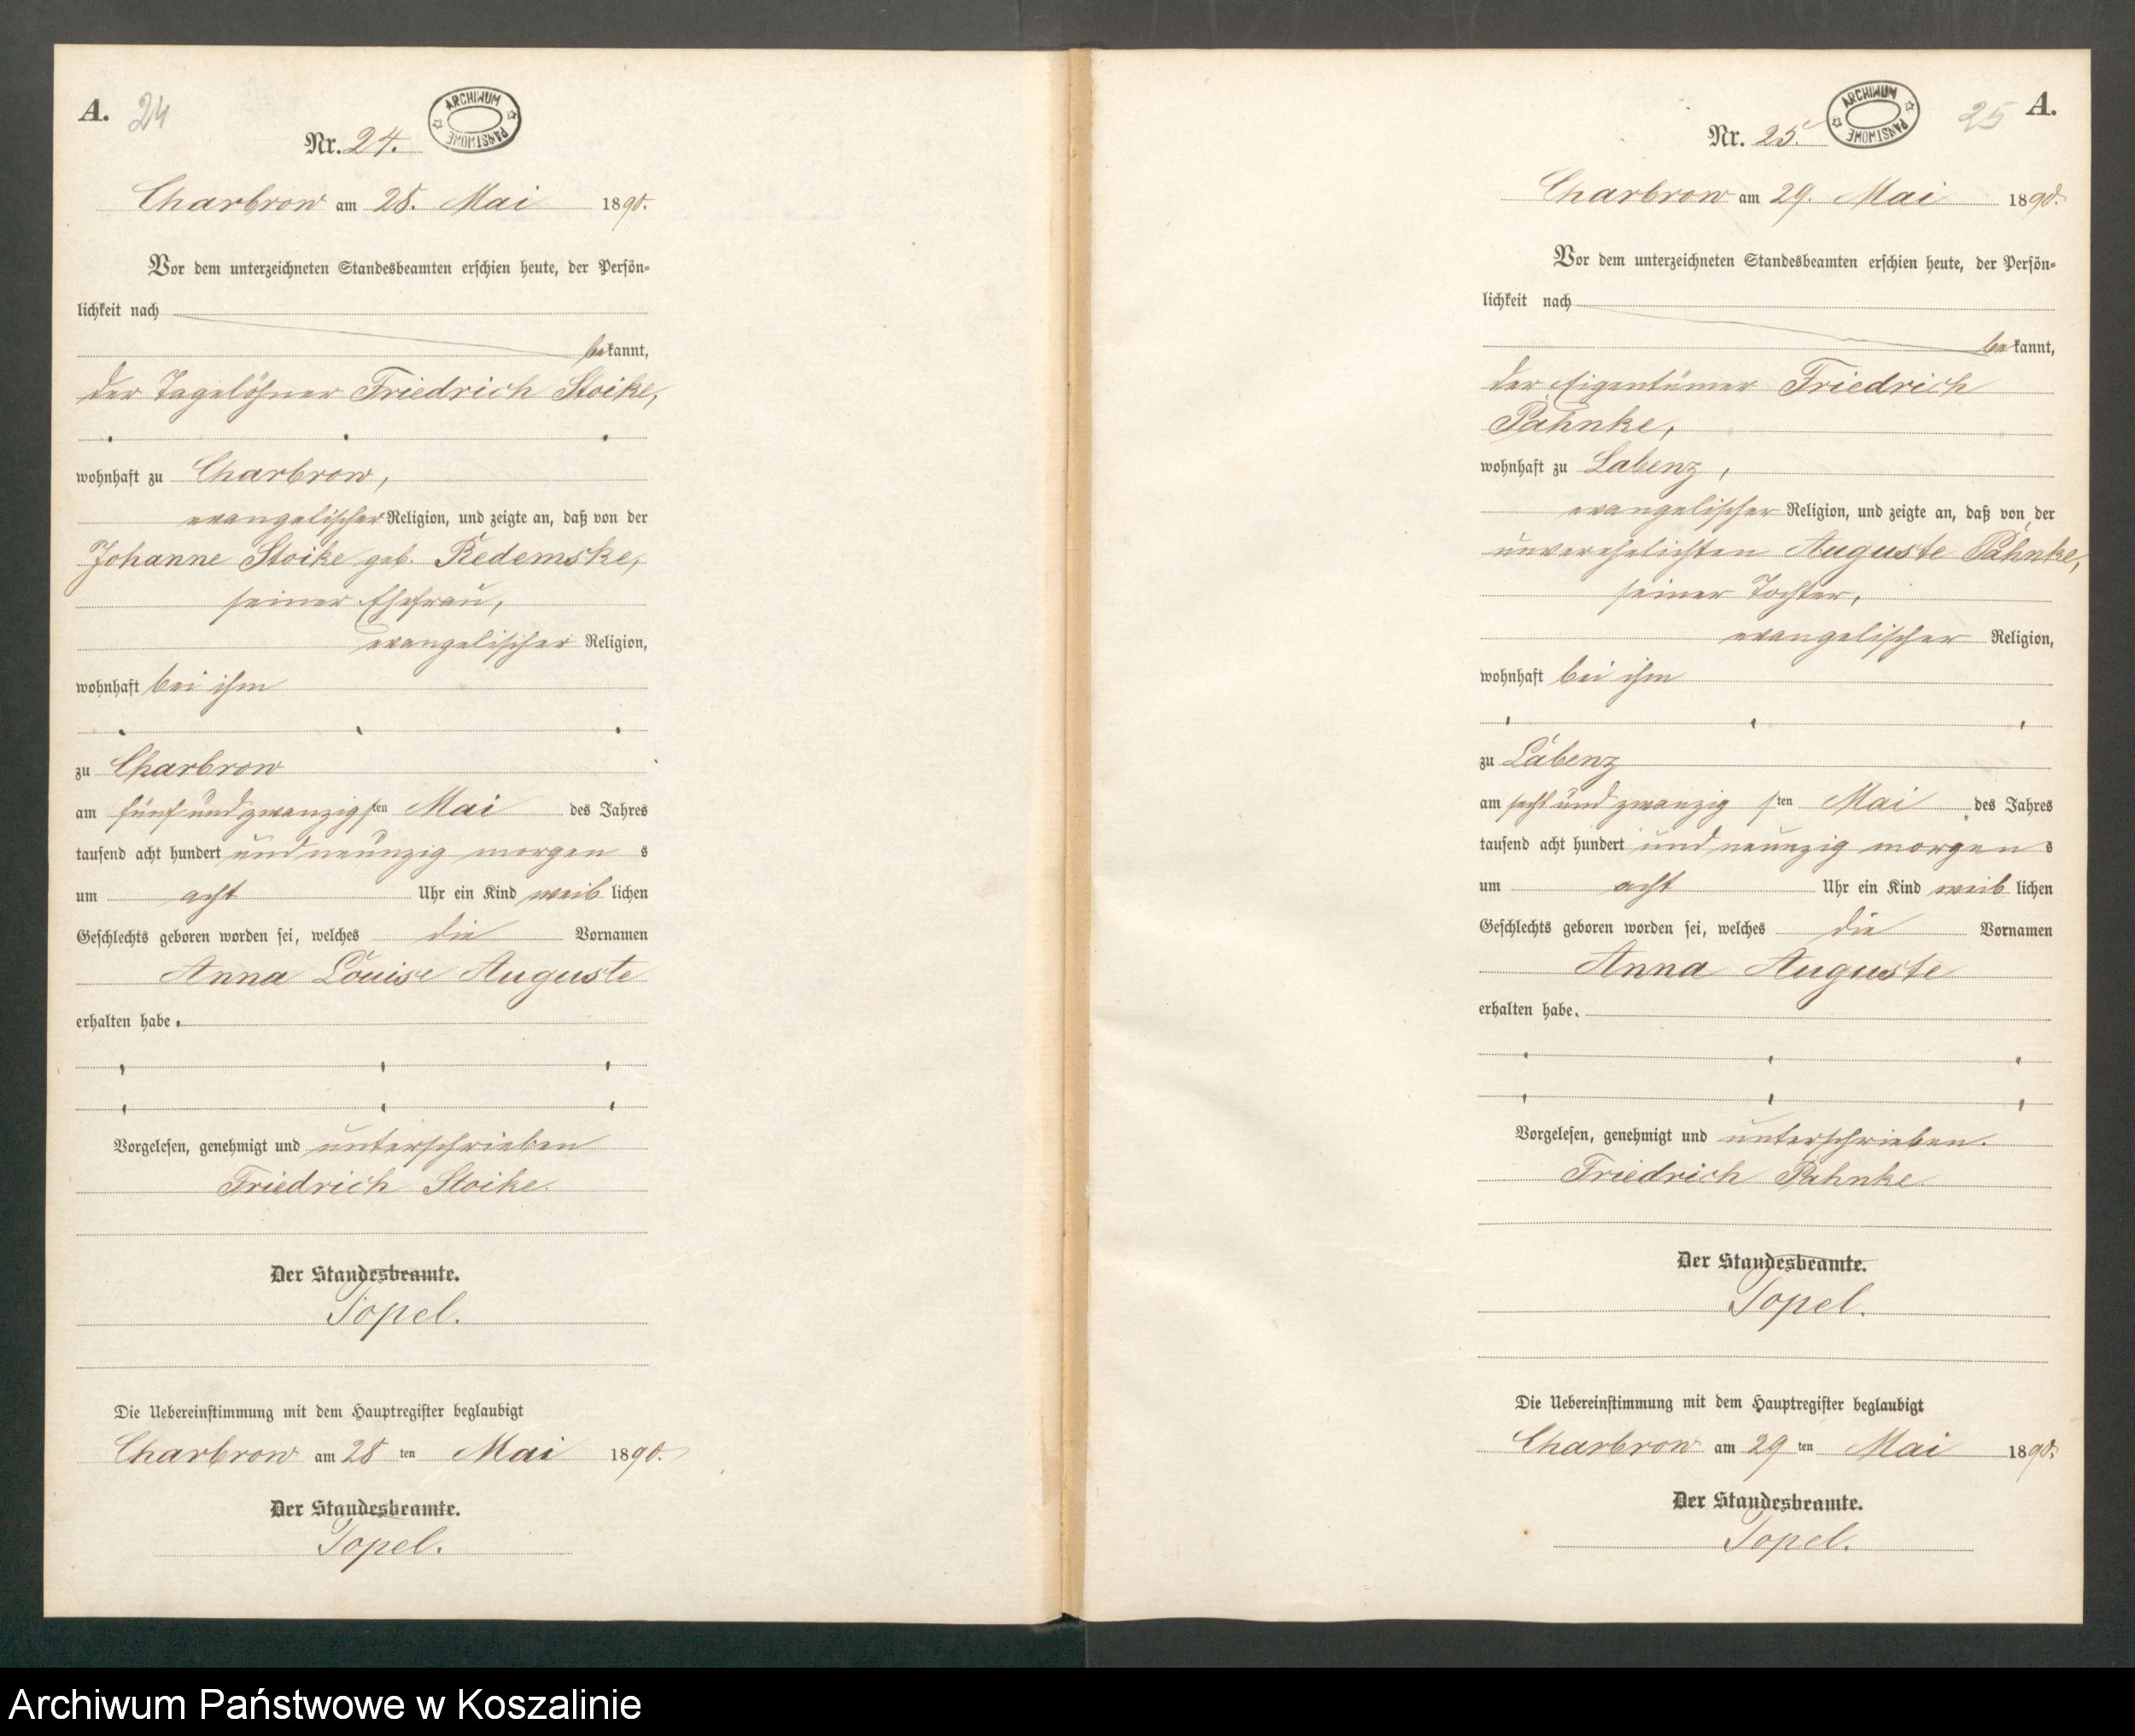 A. 24
ARCHIWUM PAŃSTWOWE
Nr. 24.
Charbrow am 28. Mai 1890.
Vor dem unterzeichneten Standesbeamten erschien heute, der Persön-
lichkeit nach
bekannt,
der Tagelöhner Friedrich Stoike,
wohnhaft zu Charbrow,
evangelischer Religion, und zeigte an, daß von der
Johanne Stoike geb. Redemske,
seiner Ehefrau,
evangelischer Religion,
wohnhaft bei ihm
zu Charbrow
am fünf und zwanzigsten Mai des Jahres
tausend acht hundert und neunzig morgens
um acht Uhr ein Kind weiblichen
Geschlechts geboren worden sei, welches die Vornamen
Anna Louise Auguste
erhalten habe.
Vorgelesen, genehmigt und unterschrieben
Friedrich Stoike.
Der Standesbeamte.
Topel.
Die Uebereinstimmung mit dem Hauptregister beglaubigt
Charbrow am 28ten Mai 1890.
Der Standesbeamte.
Topel.
25 A.
ARCHIWUM PAŃSTWOWE
Nr. 25.
Charbrow am 29. Mai 1890.
Vor dem unterzeichneten Standesbeamten erschien heute, der Persön-
lichkeit nach
bekannt,
der Eigentümer Friedrich
Pahnke,
wohnhaft zu Labenz,
evangelischer Religion, und zeigte an, daß von der
unverehelichten Auguste Pahnke,
seiner Tochter,
evangelischer Religion,
wohnhaft bei ihm
zu Labenz
am sechs und zwanzigsten Mai des Jahres
tausend acht hundert und neunzig morgens
um acht Uhr ein Kind weiblichen
Geschlechts geboren worden sei, welches die Vornamen
Anna Auguste
erhalten habe.
Vorgelesen, genehmigt und unterschrieben.
Friedrich Pahnke.
Der Standesbeamte.
Topel.
Die Uebereinstimmung mit dem Hauptregister beglaubigt
Charbrow am 29ten Mai 1890.
Der Standesbeamte.
Topel.
Archiwum Państwowe w Koszalinie